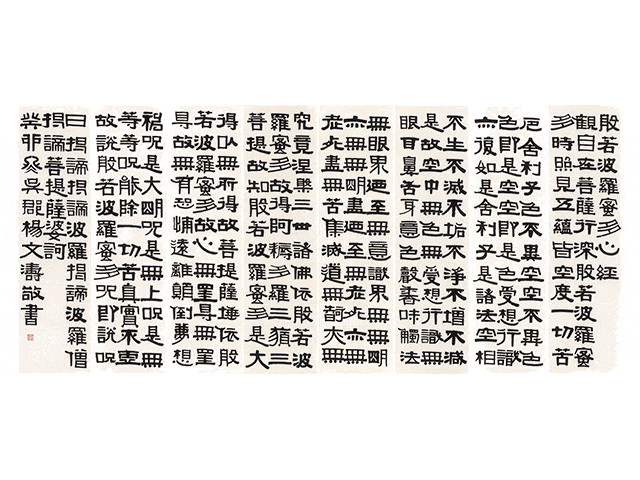 般若波羅蜜多心經
觀自在菩薩行深般若波羅蜜
多時照見五蘊皆空度一切苦
厄舍利子色不異空空不異色
色即是空空即是色受想行識
亦復如是舍利子是諸法空相
不生不滅不垢不淨不增不減
是故空中無色無受想行識無
眼耳鼻舌身意色聲香味觸法
無眼界乃至無意識界無無明
亦無無明盡乃至無老死亦無
老死盡無苦集滅道無智亦無
究竟涅槃三世諸佛依般若波
羅蜜多故得阿耨多羅三藐三
菩提故知般若波羅蜜多是大
得以無所得故菩提薩埵依般
若波羅蜜多故心無罣礙無罣
礙故無有恐怖遠離顛倒夢想
神咒是大明咒是無上咒是無
等等咒能除一切苦真實不虛
故說般若波羅蜜多咒即說咒
曰揭諦揭諦波羅揭諦波羅僧
揭諦菩提薩婆訶
癸卯冬吳郡楊文濤敬書